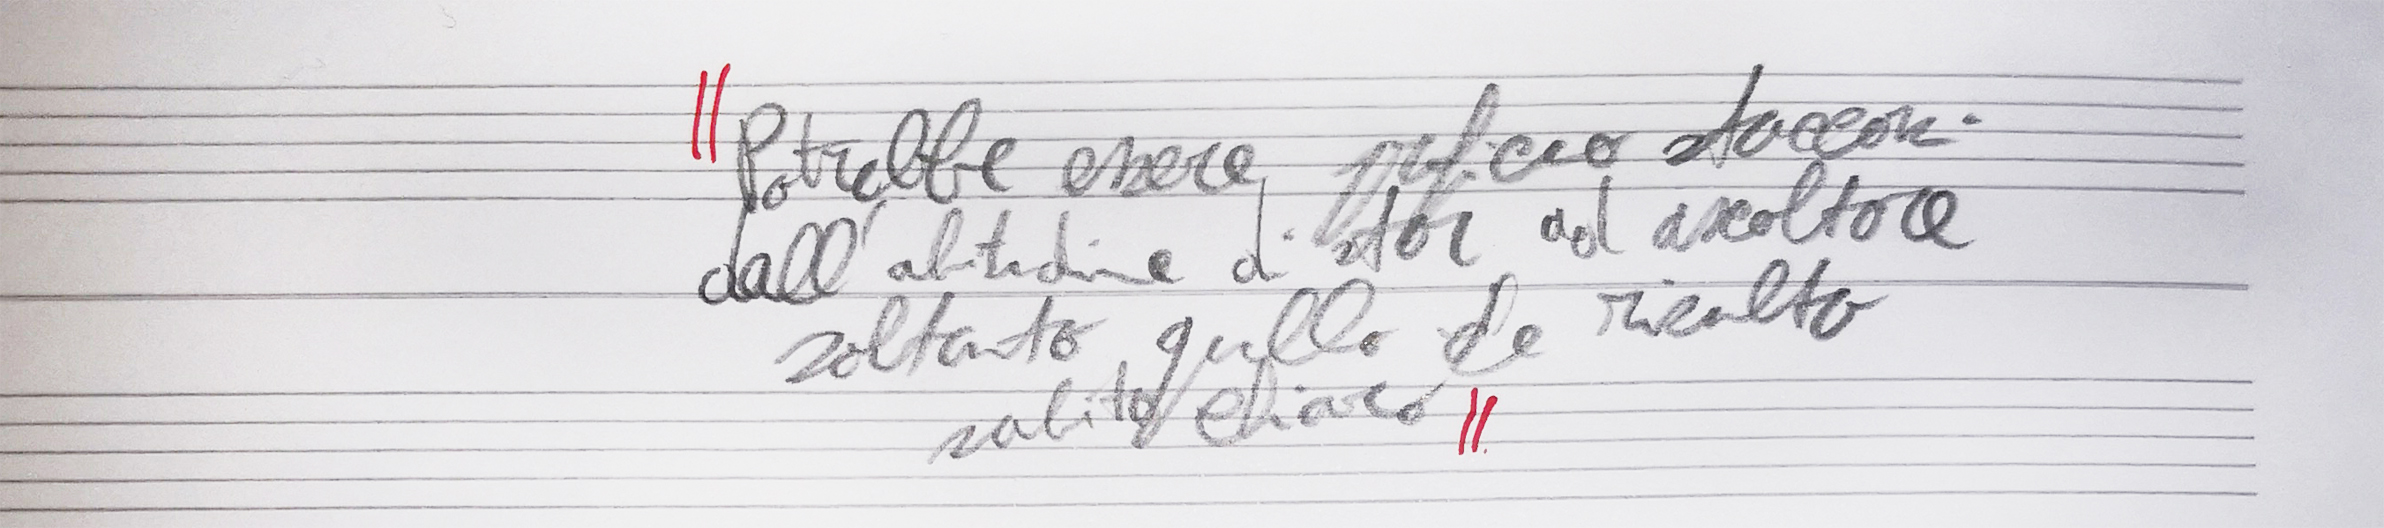 "Potrebbe essere proficuo staccarci
dall'abitudine di star ad ascoltare
soltanto quello che risulta
subito chiaro"